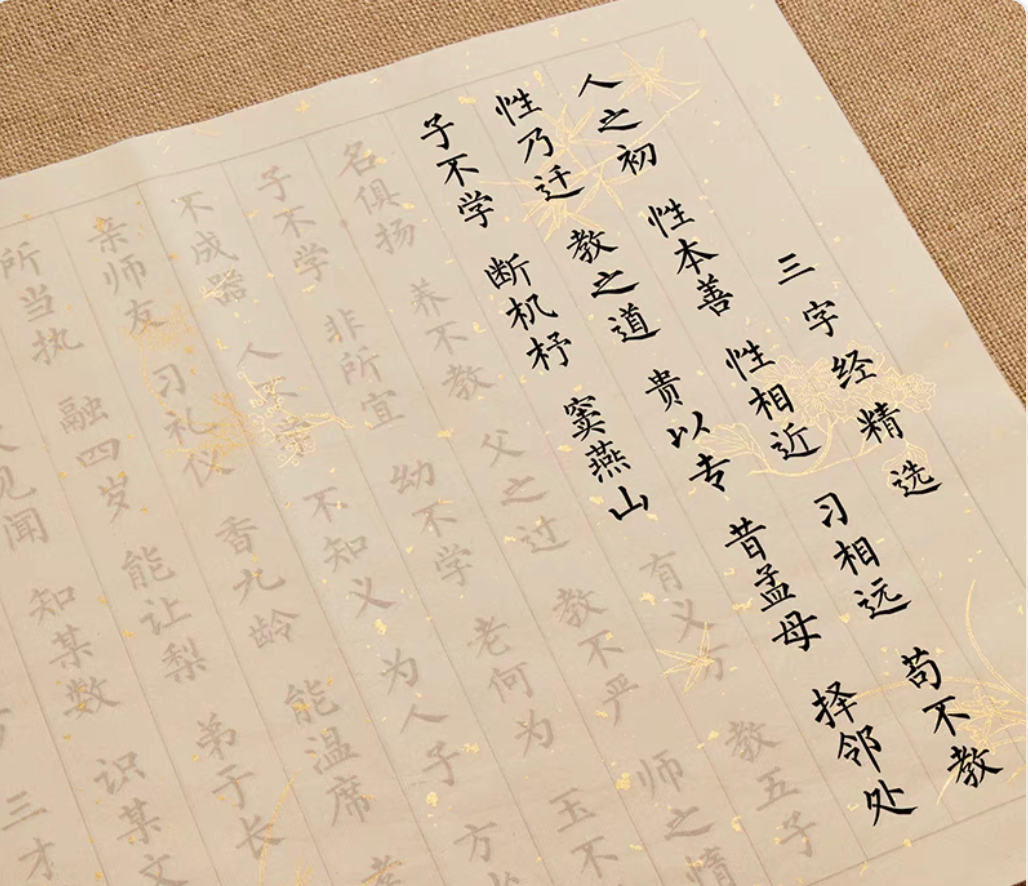 三字经精选
人之初 性本善 性相近 习相远 苟不教
性乃迁 教之道 贵以专 昔孟母 择邻处
子不学 断机杼 窦燕山 有义方 教五子
名俱扬 养不教 父之过 教不严 师之惰
子不学 非所宜 幼不学 老何为 玉不
不成器 人不学 不知义 为人子 方
亲师友 习礼仪 香九龄 能温席
所当执 融四岁 能让梨 弟于长
见闻 知某数 识某文
三才